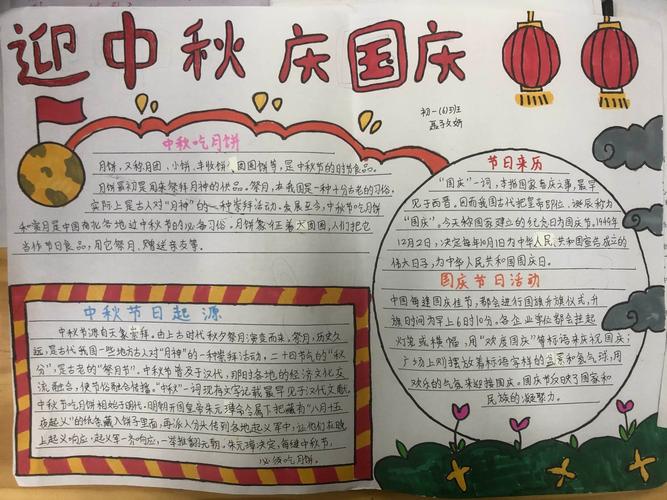 迎中秋 庆国庆
初一(6)班
中秋吃月饼
月饼,又称月团、小饼、丰收饼、团圆饼等,是中秋节的时节食品。
月饼最初是用来祭拜月神的供品。祭月,在我国是一种十分古老的习俗,
实际上是古人对“月神”的一种崇拜活动。发展至今,中秋节吃月饼
和赏月是中国南北各地过中秋节的必备习俗。月饼象征着大团圆,人们把它
当作节日食品,用它祭月、赠送亲友等。
中秋节日起源
中秋节源自天象崇拜,由上古时代秋夕祭月演变而来。祭月,历史久
远,是古代我国一些地方古人对“月神”的一种崇拜活动,二十四节气的“秋
分”,是古老的“祭月节”。中秋节普及于汉代,那时各地的经济文化交
流融合,使节俗融合传播。“中秋”一词现存文字记载最早见于汉代文献。
中秋节吃月饼相始于明代。明朝开国皇帝朱元璋命令属下把藏有“八月十五
夜起义”的纸条藏入饼子里面,再派人分头传到各地起义军中,让他们在晚
上起义响应,起义军一齐响应,一举推翻元朝。朱元璋决定,每逢中秋节,
必须吃月饼。
节日来历
“国庆”一词,本指国家喜庆之事,最早
见于西晋。因而我国古代把皇帝即位、诞辰称为
“国庆”。今天称国家建立的纪念日为国庆节。1949年
12月2日,决定每年10月1日为中华人民共和国宣告成立的
伟大日子,为中华人民共和国国庆日。
国庆节日活动
中国每逢国庆佳节,都会进行国旗升旗仪式,升
旗时间为早上6时10分。各企业学位都会挂起
灯笼或横幅,用“欢度国庆”等标语来庆祝国庆;
广场上则摆放着标语字样的盆景和氢气球,用
欢乐的气氛来迎接国庆。国庆节反映了国家和
民族的凝聚力。